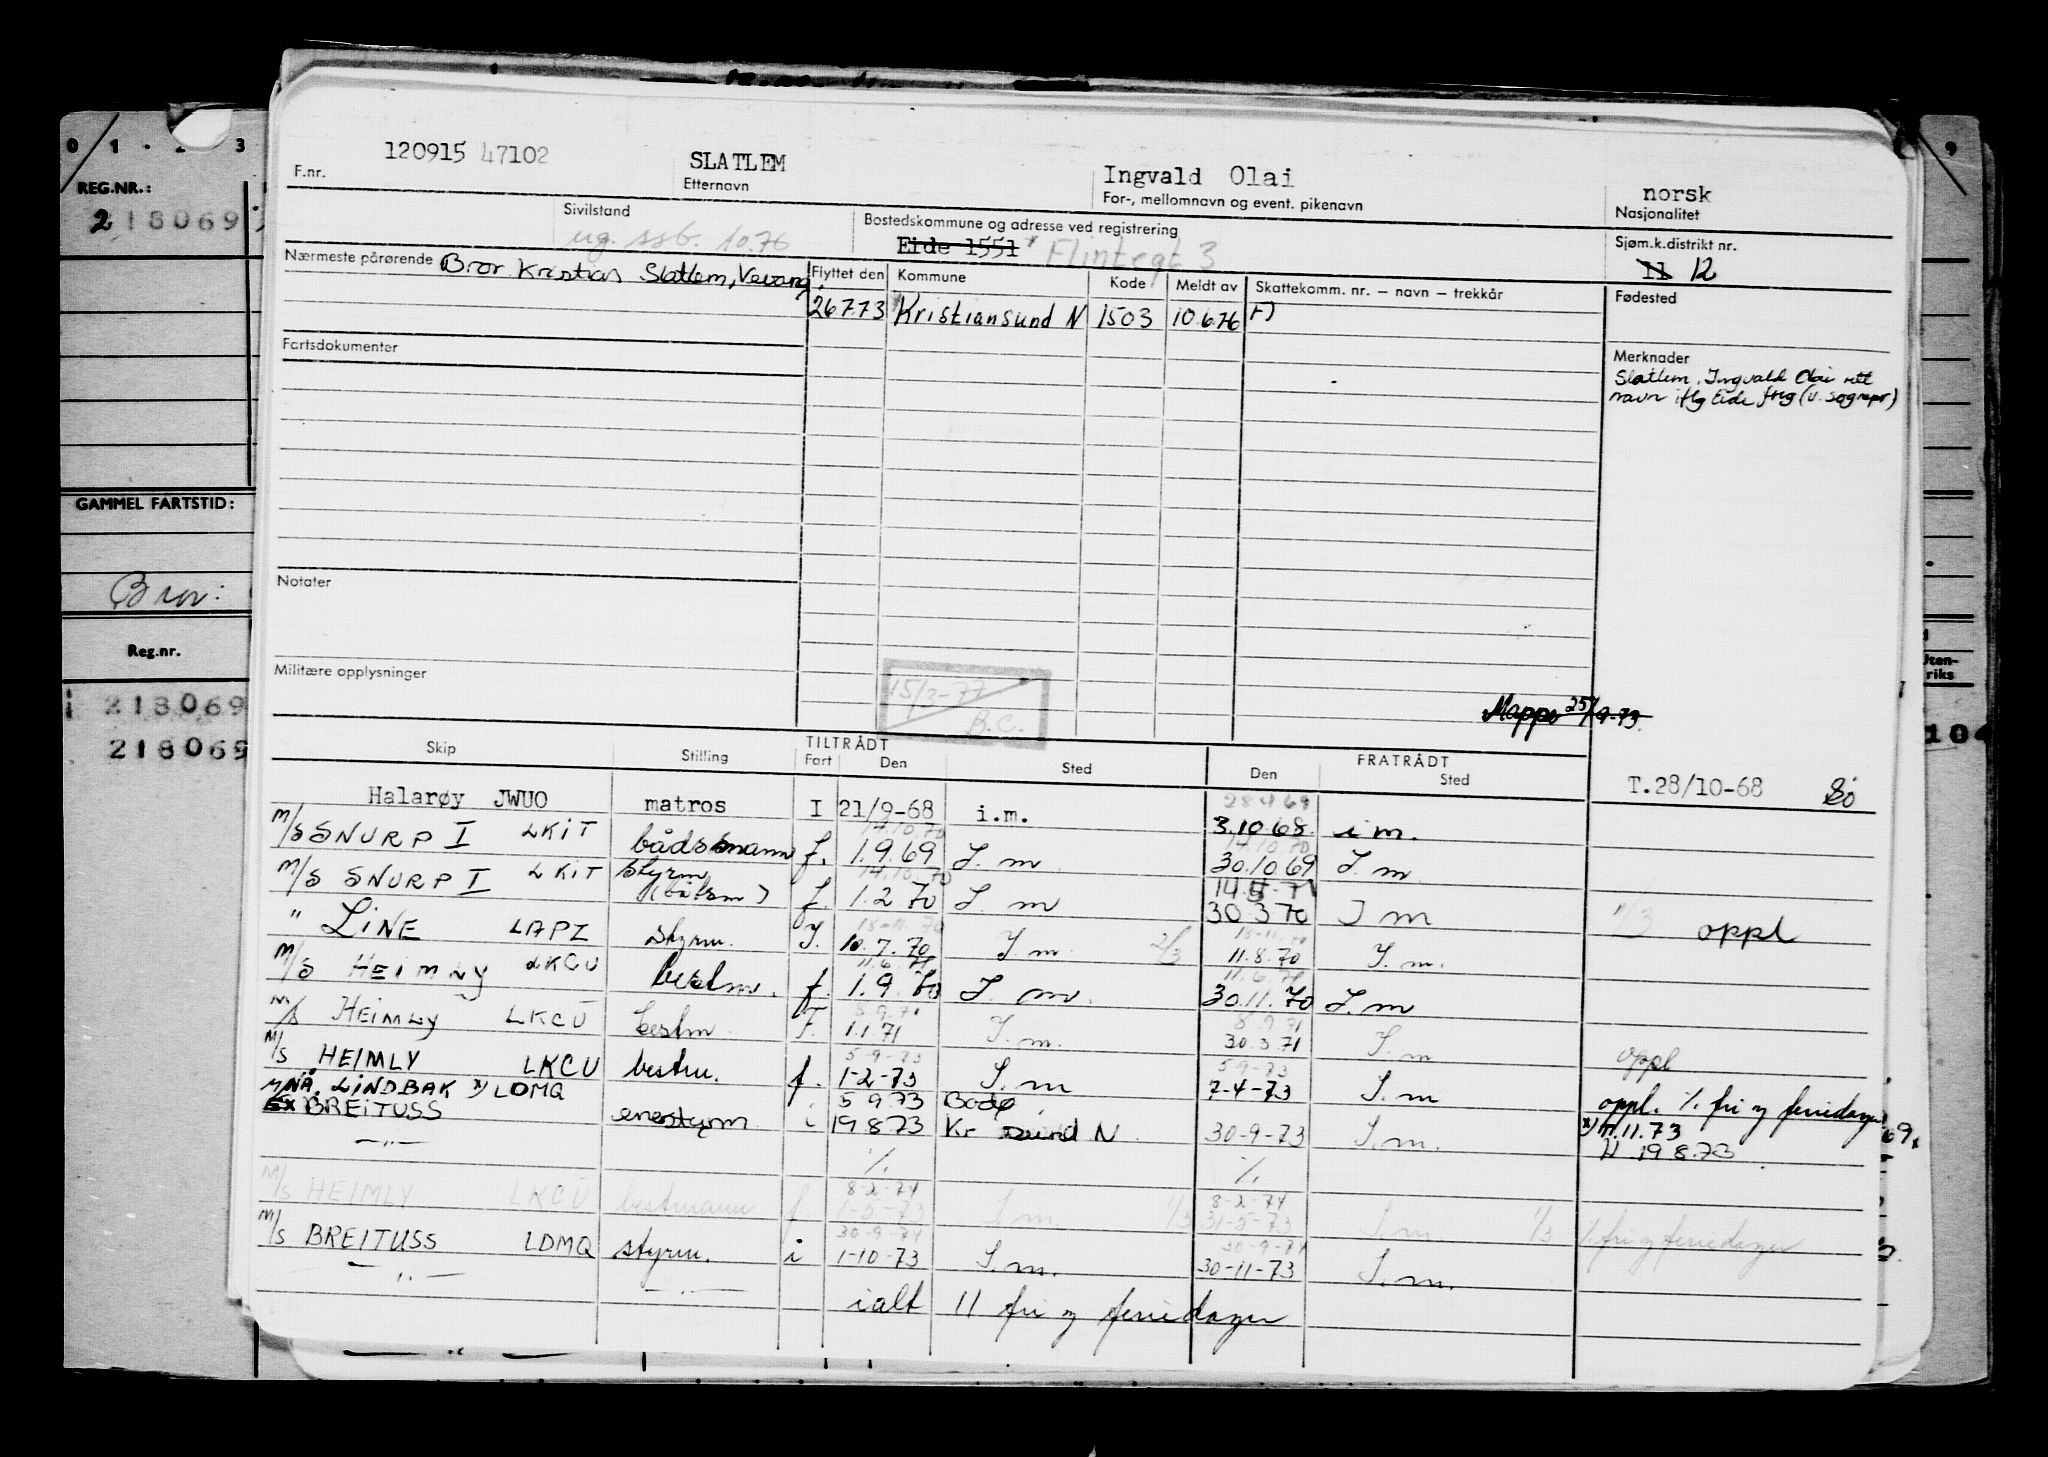 0 1 . 2 3
REG.NR.:
218069
GAMMEL FARTSTID:
Bror:
Reg.nr.
i 218069
218069
9
Uten-
riks
104
120915 47102 SLATLEM Ingvald Olai norsk
F.nr. Etternavn For-, mellomnavn og event. pikenavn Nasjonalitet
Sivilstand Bostedskommune og adresse ved registrering Sjøm.k.distrikt nr.
ug. ssb. 10.76 Eide 1551 Flintegt 3 11 12
Nærmeste pårørende Bror Kristian Slatlem, Vevang Flyttet den Kommune Kode Meldt av Skattekomm. nr. – navn – trekkår Fødested
26773 Kristiansund N 1503 10.6.76 F)
Fartsdokumenter Merknader
Slatlem, Ingvald Olai rett
navn iflg Eide freg
Notater
Militære opplysninger
15/3-77
B.C.
Mappe 25/9-73
Skip Stilling TILTRÅDT FRATRÅDT
Fart Den Sted Den Sted
T.28/10-68
28 4 69
Halarøy JWUO matros I 21/9-68 i.m. 3.10 68. i m.
14.10.70 14.10.70
M/S SNURP I LKIT bådsmann f. 1.9.69 I. m. 30.10 69 I. m.
14.10.70
M/S SNURP I LKIT styrm (båtsm) f. 1.2 70 I. m 30 3 70 I m
" LINE LAPZ styrm. I. 10.7.70 I m. 2/3 11.8.70 I. m. 1/3 oppl
M/S HEIMLY LKCU bestm. f. 1.9.70 I. m. 30.11.70 I. m
8.9.71 8.9.71
M/S HEIMLY LKCU bestm F. 1.1.71 I. m. 30.3.71 I. m
5-9-73 5-9-73
M/S HEIMLY LKCU bestm. f. 1-2-73 I. m 7-4-73 I. m oppl
M/S NÅ. LINDBAK x) LDMQ 5 9 73 Bodø oppl. ./. fri og feriedager
EX BREITUSS enestyrm i 19 8 73 Kr sund N. 30-9-73 I. m. x) 11.11.73
—"— ./. ./. U 19 8.73
8-2-74 8-2-74
M/S HEIMLY LKCU bestmann f. 1-5-73 I m. 1/3 31-5-73 I m 1/3 ./. fri og feriedager
30-9-74 30-9-74
M/S BREITUSS LDMQ styrm. i 1-10-73 I. m. 30-11-73 I. m.
—"— —"—
ialt 11 fri og feriedager